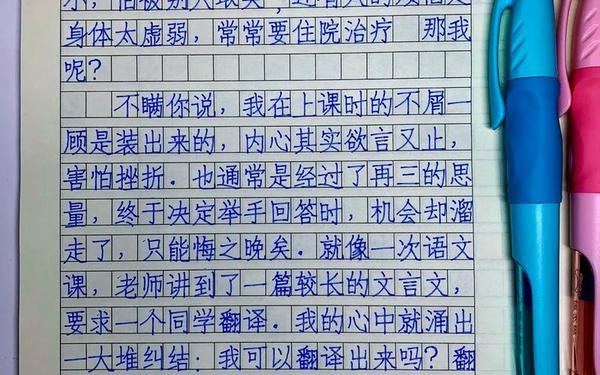 小,怕被别人耻笑,还有人的烦恼是
身体太虚弱,常常要住院治疗 那我
呢?
不瞒你说,我在上课时的不屑一
顾是装出来的,内心其实欲言又止,
害怕挫折.也通常是经过了再三的思
量,终于决定举手回答时,机会却溜
走了,只能悔之晚矣.就像一次语文
课,老师讲到了一篇较长的文言文,
要求一个同学翻译.我的心中就涌出
一大堆纠结:我可以翻译出来吗?翻